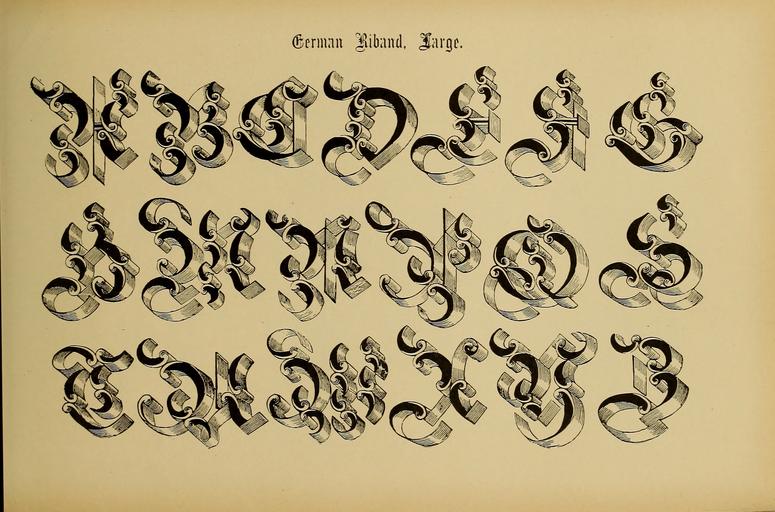 German Riband, Large.
A B C D E F G
H M N P Q S
T U W X Y Z